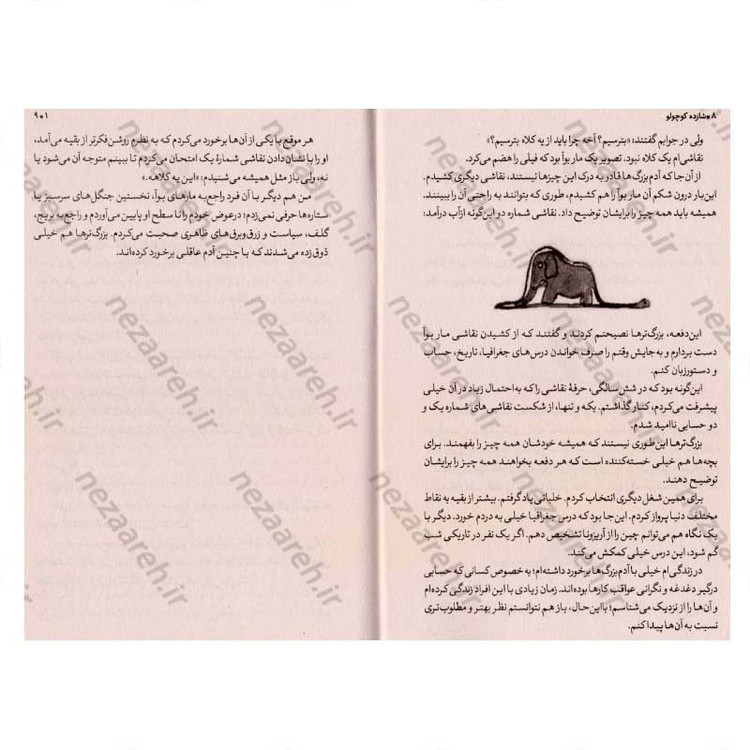 ۸ ● شازده کوچولو
ولی در جوابم گفتند: «بترسیم؟ آخه چرا باید از یه کلاه بترسیم؟»
نقاشی‌ام یک کلاه نبود. تصویر یک مار بوآ بود که فیلی را هضم می‌کرد.
از آن‌جا که آدم‌بزرگ‌ها قادر به درک این چیزها نیستند، نقاشی دیگری کشیدم.
این‌بار درون شکم آن مار بوآ را هم کشیدم، طوری که بتوانند به راحتی آن را ببینند.
همیشه باید همه چیز را برایشان توضیح داد. نقاشی شماره دو این‌گونه ازآب درآمد:
این‌دفعه، بزرگ‌ترها نصیحتم کردند و گفتند که از کشیدن نقاشی مار بوآ
دست بردارم و به‌جایش وقتم را صرف خواندن درس‌های جغرافیا، تاریخ، حساب
و دستورزبان کنم.
این‌گونه بود که در شش‌سالگی، حرفهٔ نقاشی را که به‌احتمال زیاد در آن خیلی
پیشرفت می‌کردم، کنار گذاشتم. یکه و تنها، از شکست نقاشی‌های شماره یک و
دو حسابی ناامید شدم.
بزرگ‌ترها این‌طوری نیستند که همیشه خودشان همه چیز را بفهمند. برای
بچه‌ها هم خیلی خسته‌کننده است که هر دفعه بخواهند همه چیز را برایشان
توضیح دهند.
برای همین شغل دیگری انتخاب کردم. خلبانی یاد گرفتم. بیشتر از بقیه به نقاط
مختلف دنیا پرواز کردم. این‌جا بود که درس جغرافیا خیلی به دردم خورد. دیگر با
یک نگاه هم می‌توانم چین را از آریزونا تشخیص دهم. اگر یک نفر در تاریکی شب
گم شود، این درس خیلی کمکش می‌کند.
در زندگی‌ام خیلی با آدم‌بزرگ‌ها برخورد داشته‌ام؛ به خصوص کسانی که حسابی
درگیر دغدغه و نگرانی عواقب کارها بوده‌اند. زمان زیادی با این افراد زندگی کرده‌ام
و آن‌ها را از نزدیک می‌شناسم؛ بااین‌حال، باز هم نتوانستم نظر بهتر و مطلوب‌تری
نسبت به آن‌ها پیدا کنم.
۱ ● ۹
هر موقع با یکی از آن‌ها برخورد می‌کردم که به نظرم روشن فکرتر از بقیه می‌آمد،
او را با نشان‌دادن نقاشی شمارهٔ یک امتحان می‌کردم تا ببینم متوجه آن می‌شود یا
نه، ولی باز مثل همیشه می‌شنیدم: «این یه کلاهه.»
من هم دیگر با آن فرد راجع‌به مارهای بوآ، نخستین جنگل‌های سرسبز یا
ستاره‌ها حرفی نمی‌زدم؛ درعوض خودم را تا سطح او پایین می‌آوردم و راجع‌به بریج،
گلف، سیاست و زرق‌وبرق‌های ظاهری صحبت می‌کردم. بزرگ‌ترها هم خیلی
ذوق زده می‌شدند که با چنین آدم عاقلی برخورد کرده‌اند.
nezaareh.ir